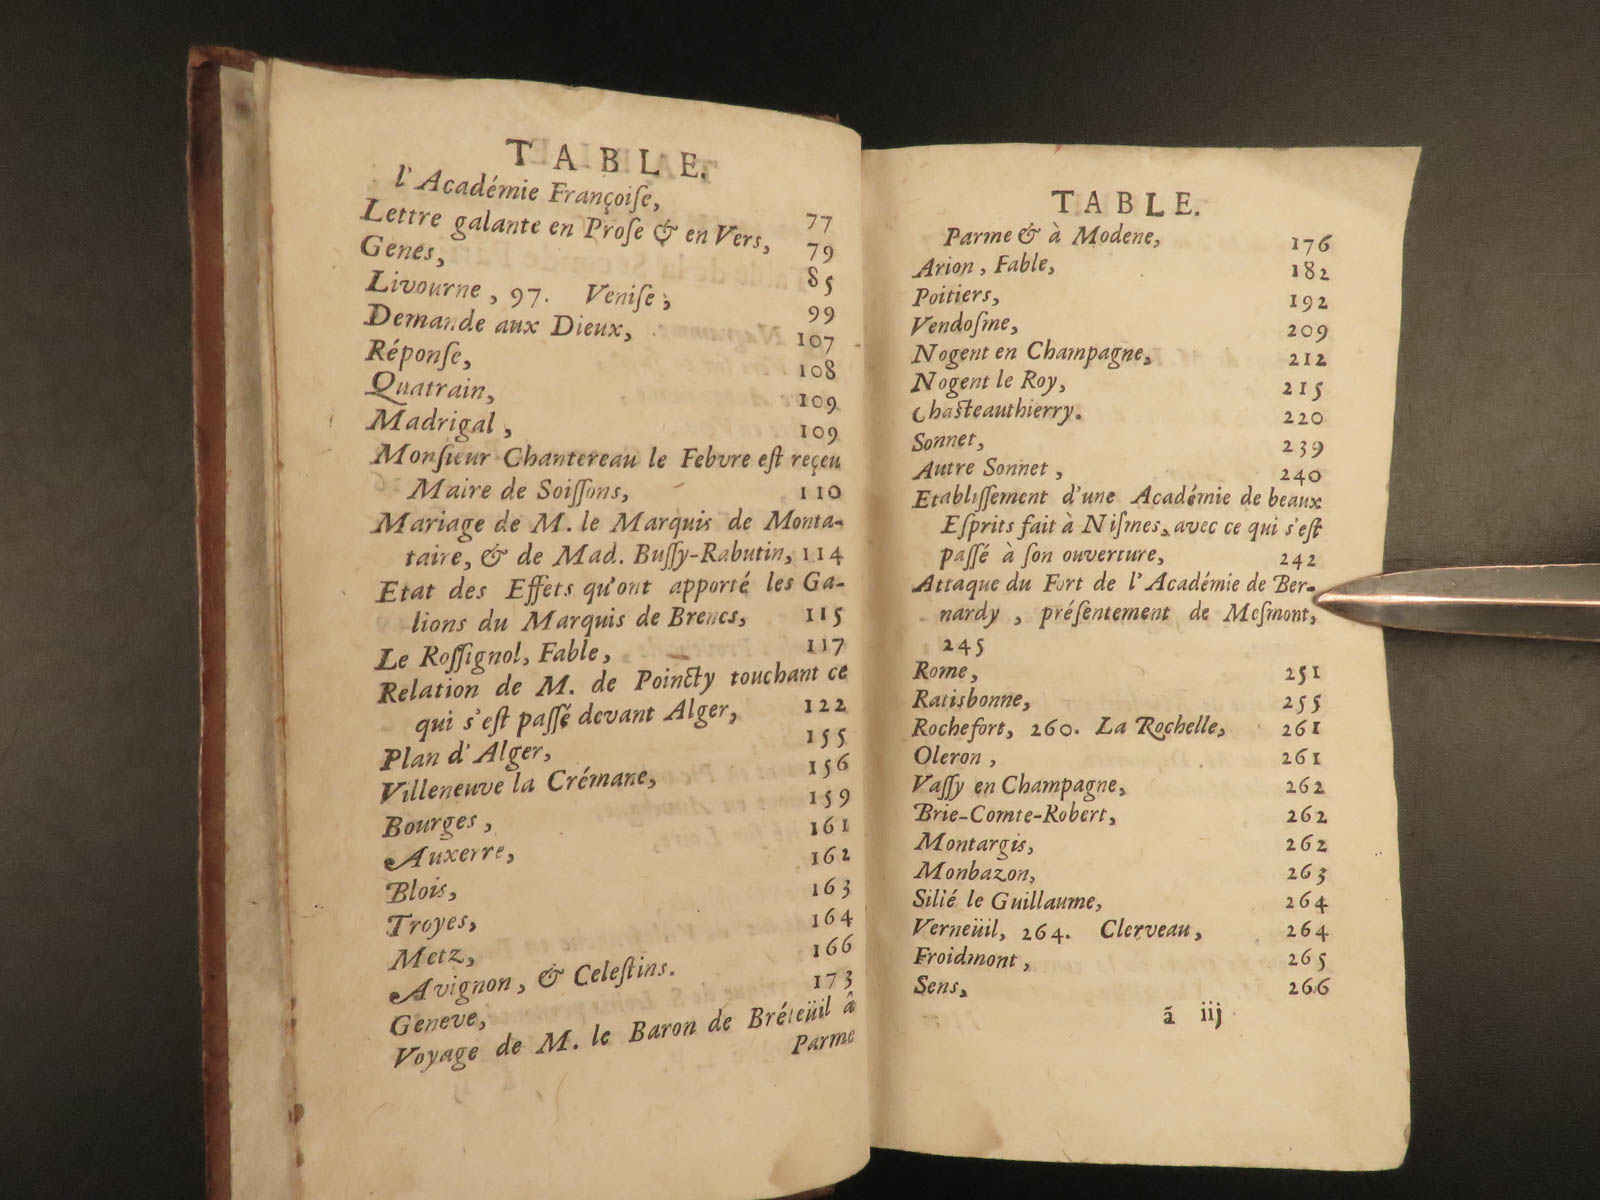 TABLE.
l'Académie Françoiſe, 77
Lettre galante en Proſe & en Vers, 79
Genes, 85
Livourne, 97. Veniſe, 99
Demande aux Dieux, 107
Réponſe, 108
Quatrain, 109
Madrigal, 109
Monſieur Chantereau le Febvre eſt reçeu
Maire de Soiſſons, 110
Mariage de M. le Marquis de Monta-
taire, & de Mad. Buſſy-Rabutin, 114
Etat des Effets qu'ont apporté les Ga-
lions du Marquis de Brencs, 115
Le Roſſignol, Fable, 117
Relation de M. de Poincty touchant ce
qui s'eſt paſſé devant Alger, 122
Plan d'Alger, 155
Villeneuve la Crémane, 156
Bourges, 159
Auxerre, 161
Blois, 162
Troyes, 163
Metz, 164
Avignon, & Celeſtins. 166
Geneve, 173
Voyage de M. le Baron de Bréteüil à
Parme
TABLE.
Parme & à Modene, 176
Arion, Fable, 182
Poitiers, 192
Vendoſme, 209
Nogent en Champagne, 212
Nogent le Roy, 215
Chaſteauthierry. 220
Sonnet, 239
Autre Sonnet, 240
Etabliſſement d'une Académie de beaux
Eſprits fait à Niſmes, avec ce qui s'eſt
paſſé à ſon ouverture, 242
Attaque du Fort de l'Académie de Ber-
nardy, préſentement de Meſmont,
245
Rome, 251
Ratisbonne, 255
Rochefort, 260. La Rochelle, 261
Oleron, 261
Vaſſy en Champagne, 262
Brie-Comte-Robert, 262
Montargis, 262
Monbazon, 263
Silié le Guillaume, 264
Verneüil, 264. Clerveau, 264
Froidmont, 265
Sens, 266
ã iij